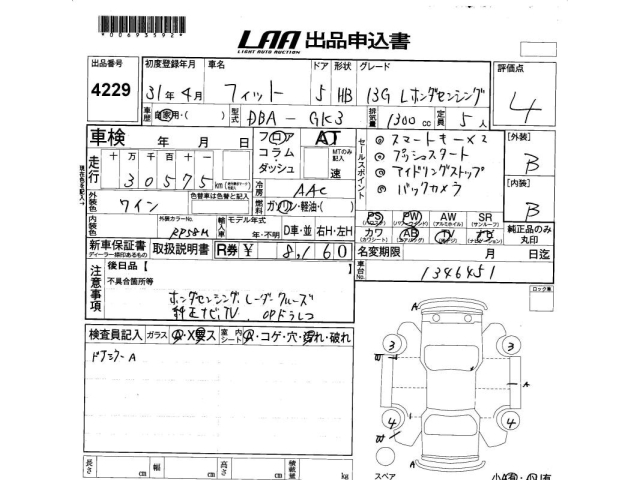 00693592
LAA 出品申込書
LIGHT AUTO AUCTION
出品番号 初度登録年月 車名 ドア 形状 グレード 評価点
4229 31年4月 フィット 5 HB 13G Lホンダセンシング 4
車歴 自家用・( ) 型式 DBA-GK3 排気量 1300 cc 定員 5人
車検 年 月 日 フロア AT
コラム・ MTのみ記入
ダッシュ 速
走行 十万千百十
30575 km
セールスポイント
スマートキー×2
プッシュスタート
アイドリングストップ
バックカメラ
[外装]
B
[内装]
B
現在色を記入→ 外装色 色替車は色替と記入 ワイン
冷房 AAC
燃料 ガソリン・軽油・( )
内装色 外装カラーNo. RP58M 輸入車 モデル年式 年・不明 D車・並 右H・左H
PS PW AW SR
(パワーステ) (パワーウィンド) (アルミホイル) (サンルーフ)
カワ AB TV ナビ
(カワシート) (エアバッグ) (ナビゲーション)
純正品のみ丸印
新車保証書 取扱説明書 R券 ¥ 8,160
ディーラー様印あるもの
名変期限 月 日迄
車台No. 1346451
注意事項 後日品【
不具合箇所等
ホンダセンシング、レーダークルーズ
純正ナビ、TV、OPどうしつ
ロック車
検査員記入 ガラス A・X要ス 室内シート A・コゲ・穴・汚れ・破れ
ドアミラーA
A
3
3
A
4
4
A
長さ 幅 高さ 積載量 kg
スペア
小A有・小U有